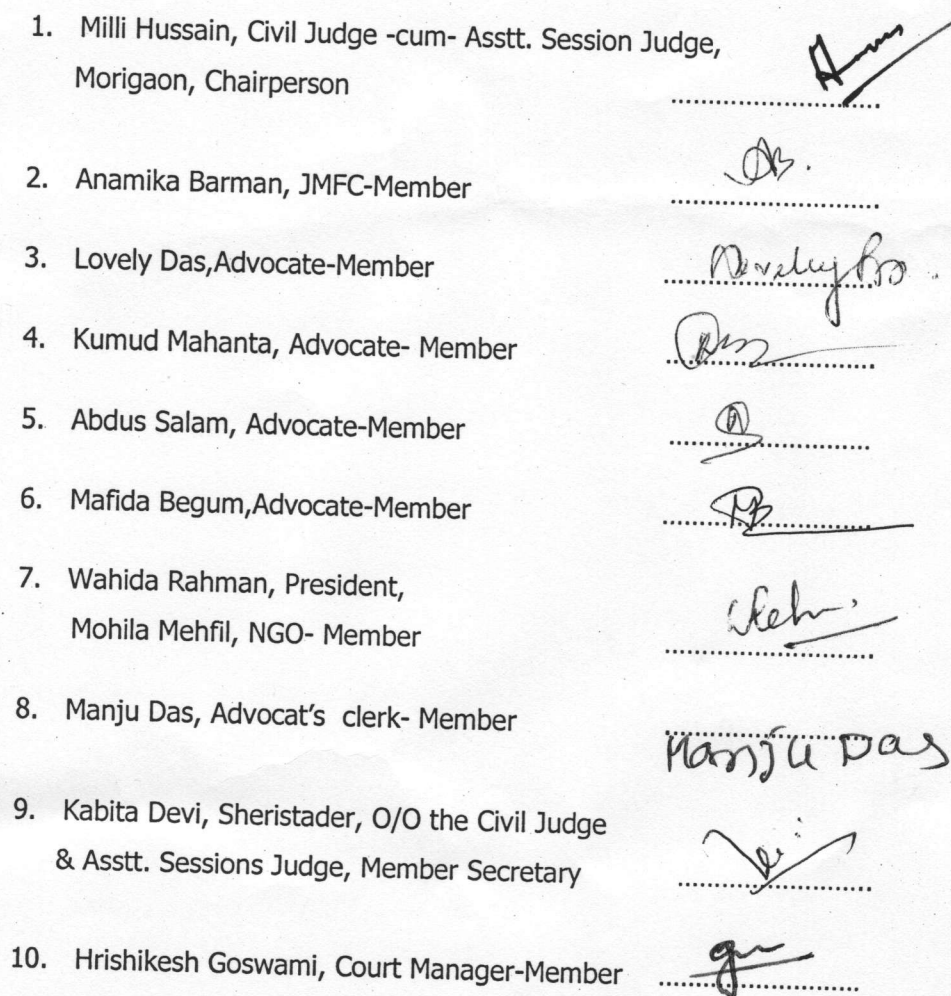 1. Milli Hussain, Civil Judge -cum- Asstt. Session Judge,
Morigaon, Chairperson
2. Anamika Barman, JMFC-Member
3. Lovely Das,Advocate-Member
4. Kumud Mahanta, Advocate- Member
5. Abdus Salam, Advocate-Member
6. Mafida Begum,Advocate-Member
7. Wahida Rahman, President,
Mohila Mehfil, NGO- Member
8. Manju Das, Advocat's clerk- Member
Manju Das
9. Kabita Devi, Sheristader, O/O the Civil Judge
& Asstt. Sessions Judge, Member Secretary
10. Hrishikesh Goswami, Court Manager-Member